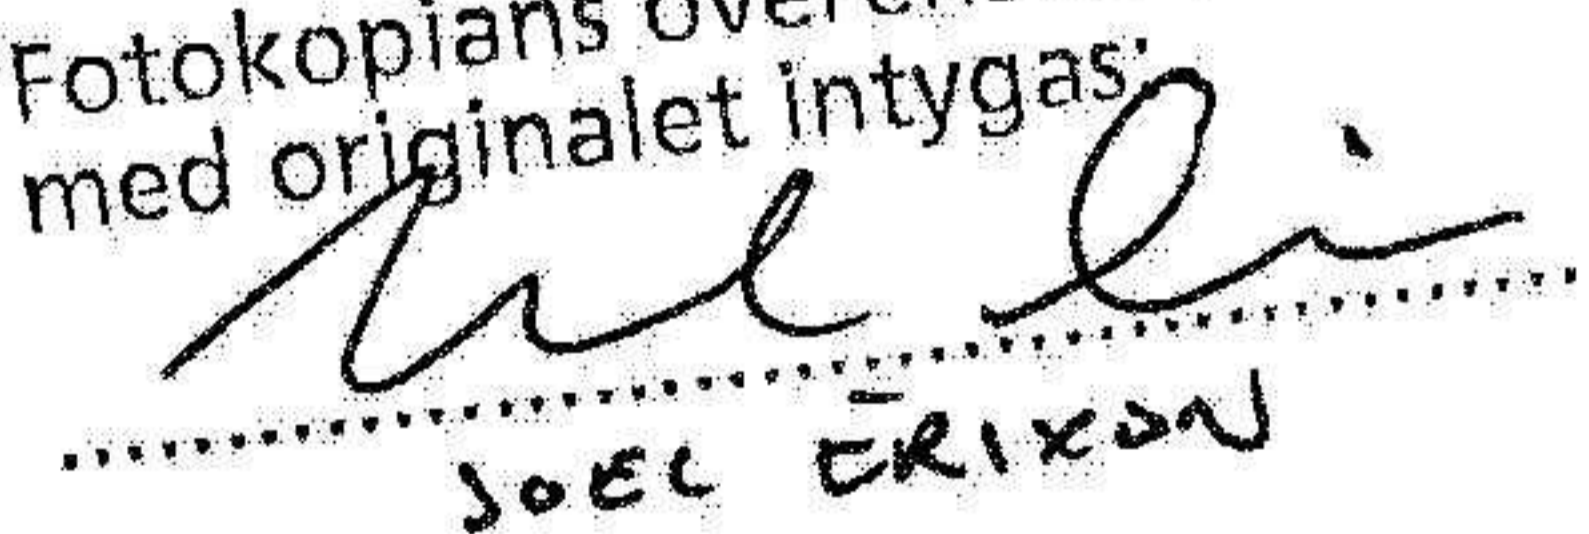 Fotokopians
med originalet intygas:
JOEL ERIXON